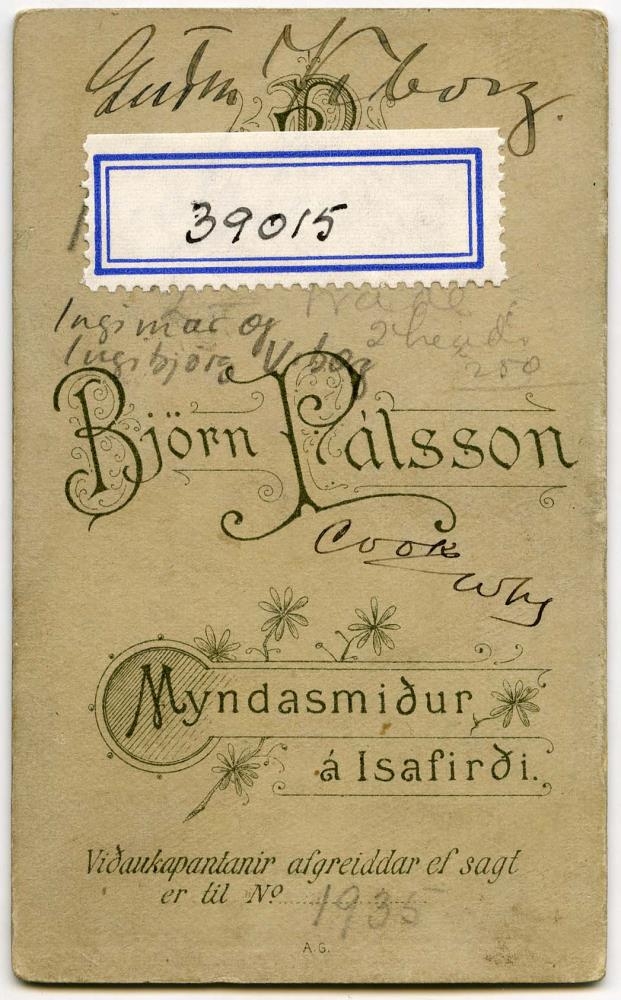 Guðm V. borg.
39015
Ingimar og
Ingibjörg V. borg
2 heads
250
Björn Pálsson
Cook
Myndasmiður
á Isafirði.
Viðaukapantanir afgreiddar ef sagt
er til Nº 1935
A.G.